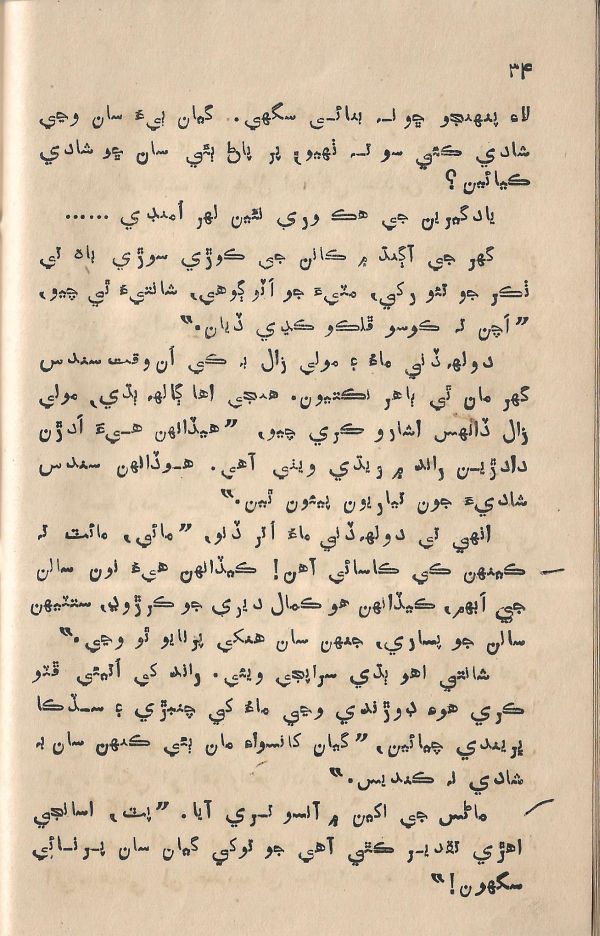 ۳۴
لاءِ پنهنجو ڇو نہ بنائي سگهي. گيان ٻيءَ سان وڃي
شادي ڪئي سو نہ ٺهيو، پر پاڻ ٻئي سان ڇو شادي
ڪيائين؟
يادگيرين جي هڪ وري نئين لهر اُمنڊي ......
گهر جي آڳنڌ ۾ ڪانن جي ڪوڙي سوڙي باهہ تي
ٺڪر جو نئو رکي، مٽيءَ جو اَٽو ڳوهي، شانتيءَ ٿي چيو،
”اچن تہ ڪوسو ڦلڪو کڍي ڏيان.“
دولهہ ڏني ماءُ ۽ مولي زال بہ کي اُن وقت سندس
گهر مان ئي ٻاهر نڪتيون. هنجي اها ڳالهہ ٻڌي، مولي
زال ڏانهس اشارو ڪري چيو، ”هيڏانهن هيءَ اَڌڙن
دادڙين راند ۾ ريڌي ويٺي آهي. هوڏانهن سندس
شاديءَ جون تياريون پيئون ٿين.“
انهي تي دولهہ ڏني ماءُ اُتر ڏنو، ”مائي، مائٽ نہ
ڪيئن کي ڪاسائي آهن! ڪيڏانهن هيءَ نون سالن
جي اَٻهم، ڪيڏانهن هو ڪمال ديري جو ڪرڙوڍ، ستتيهن
سالن جو پساري، جنهن سان هنکي پرڻايو ٿو وڃي.“
شانتي اهو ٻڌي سراپجي ويئي. راند کي اُتيئي ڦٽو
ڪري هوءَ ڊوڙندي وڃي ماءُ کي چنبڙي ۽ سڏڪا
ڀريندي چيائين، ”گيان کانسواءِ مان ٻئي ڪنهن سان بہ
شادي نہ ڪنديس.“
ماڻس جي اکين ۾ آنسو تري آيا. ”پٽ، اسانجي
اهڙي تقدير ڪٿي آهي جو توکي گيان سان پرڻائي
سگهون!“